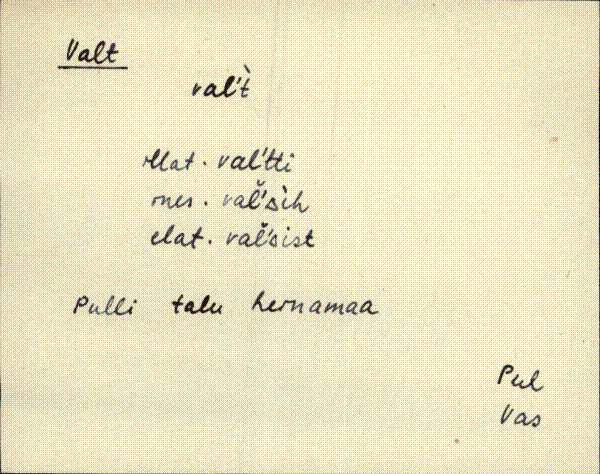 Valt
val't̀
illat. val'tti
ines. val̆'sìh
elat. val̆'sist
Pulli talu heinamaa
Pul
Vas